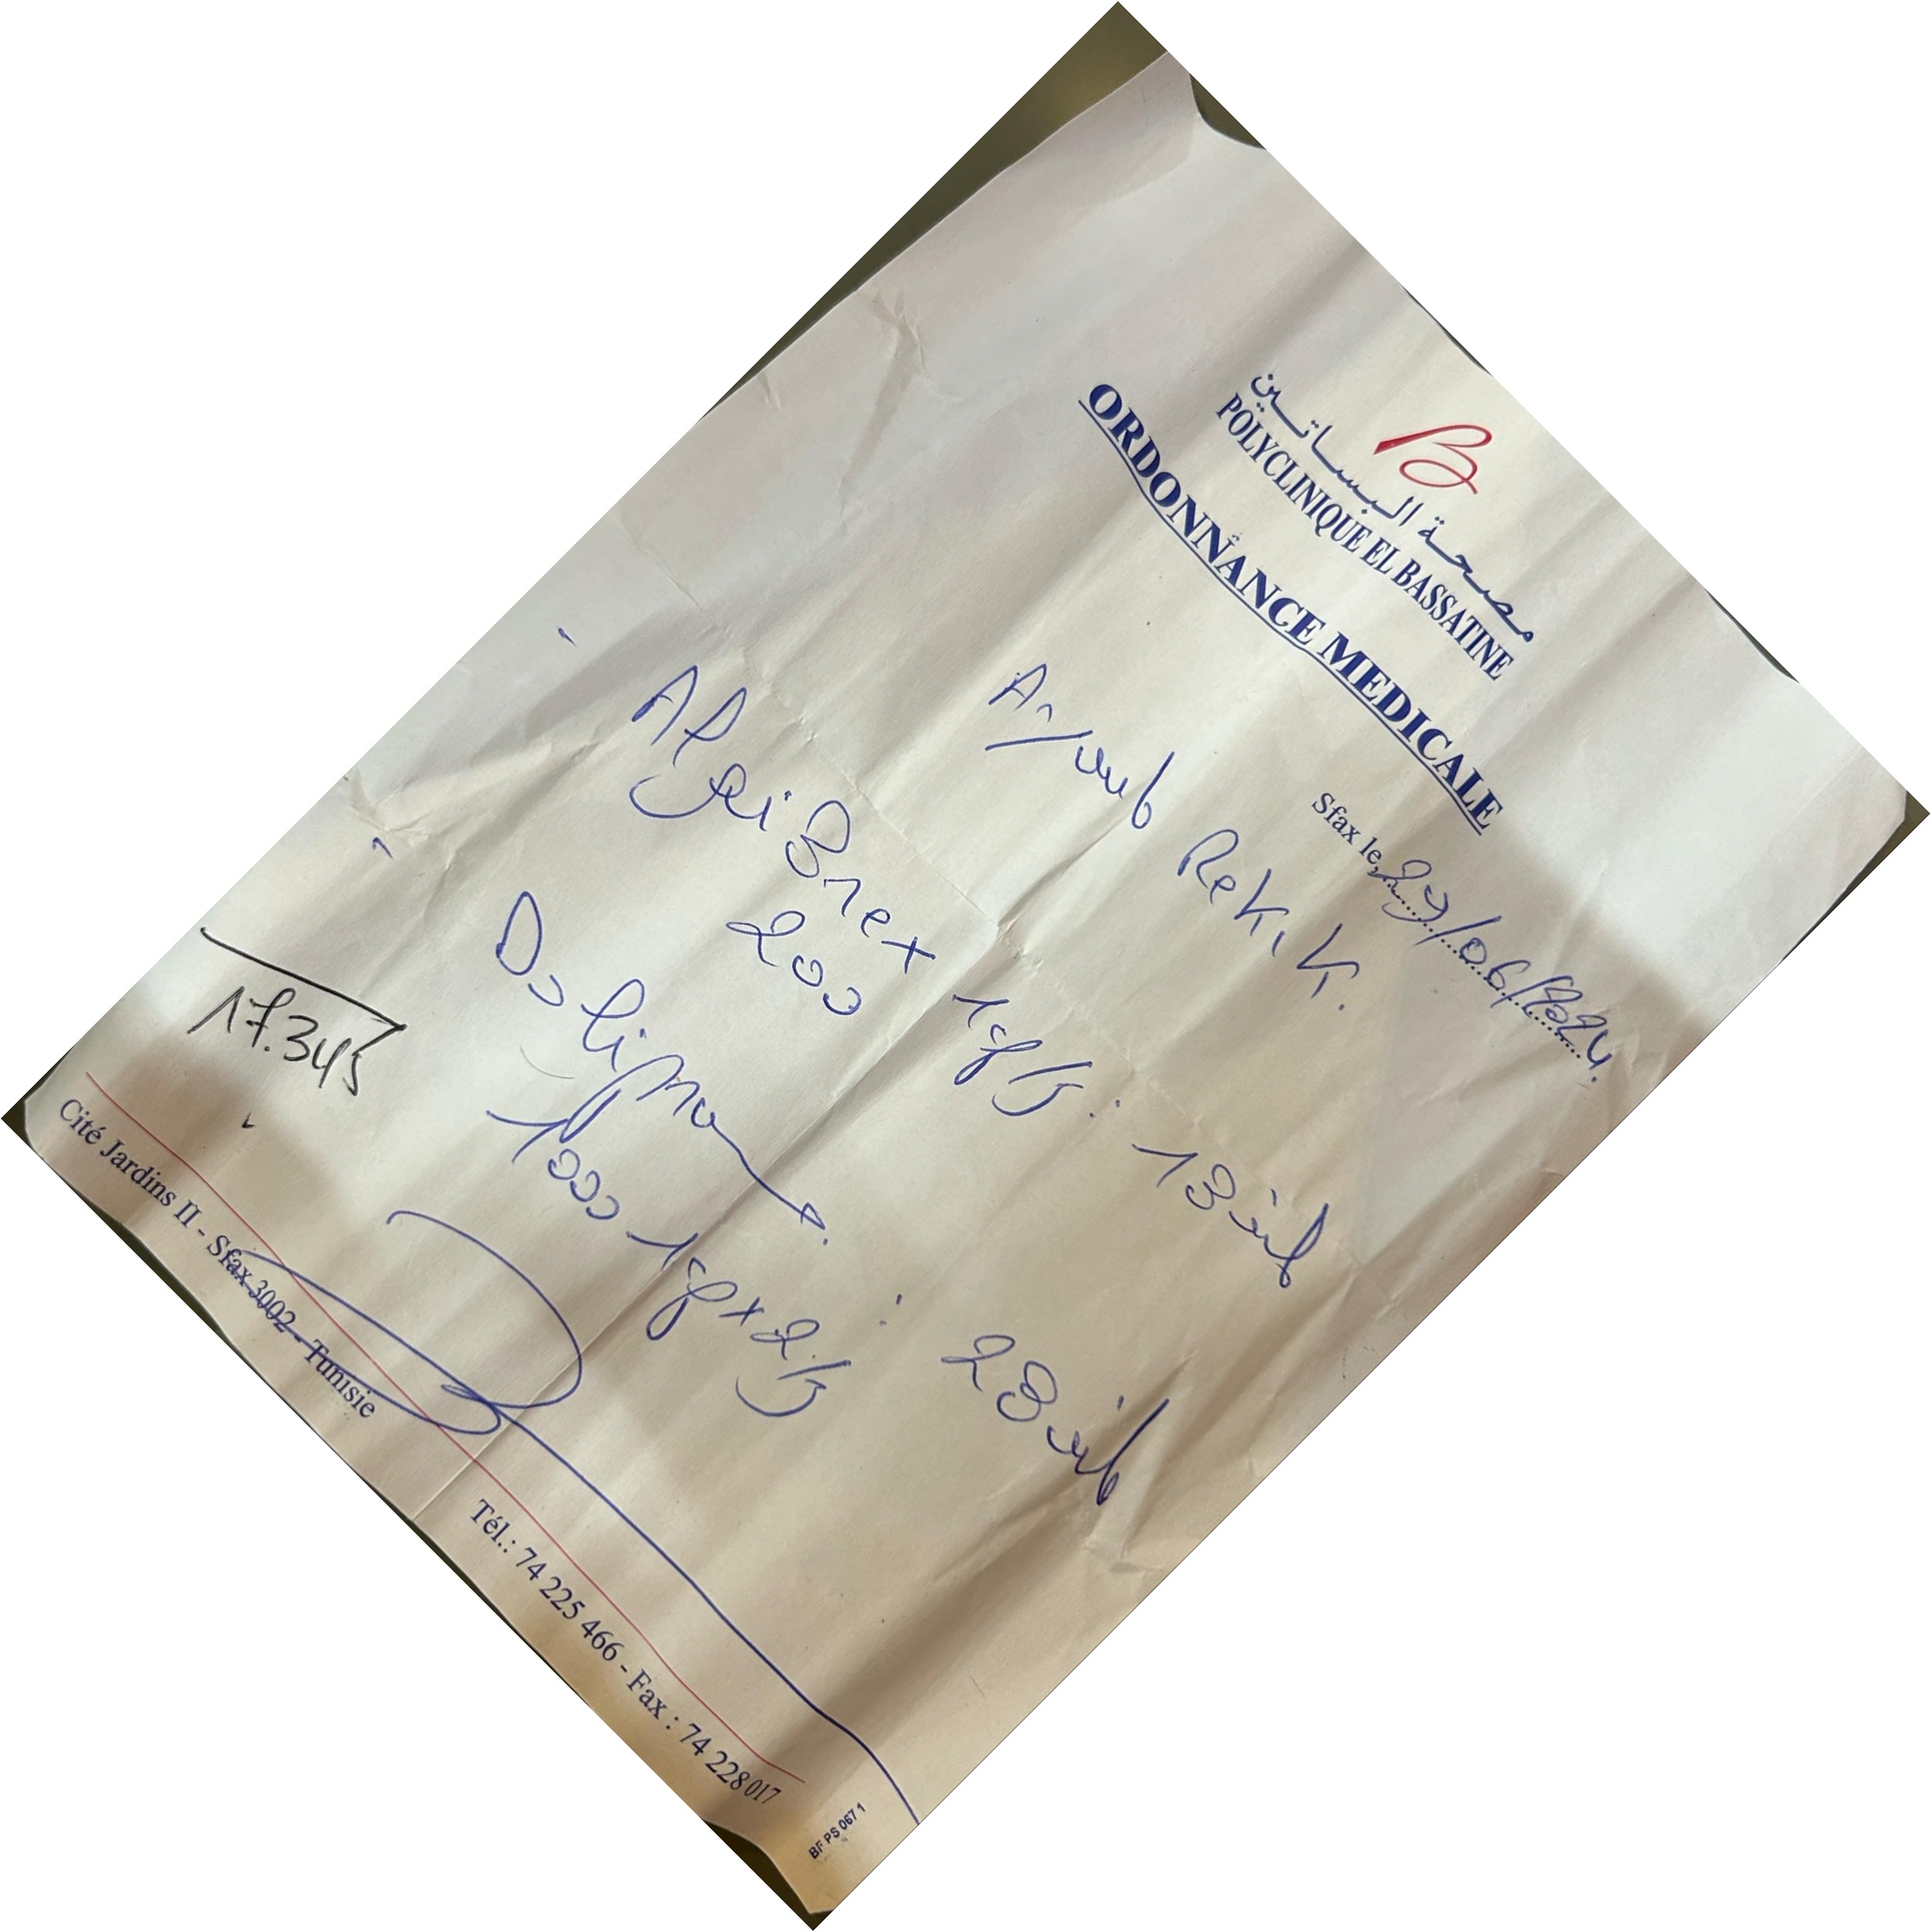 مصحة البساتين
POLYCLINIQUE EL BASSATINE
ORDONNANCE MEDICALE
Sfax le, 27/06/2024.
Ayoub Rekik.
Algi Brex
200 1gel/j : 1 Boite
Doliprane
1000 1cp x 2/j : 2 Boite
17.345
Cité Jardins II - Sfax 3002 - Tunisie Tél.: 74 225 466 - Fax : 74 228 017
BF PS 067 1